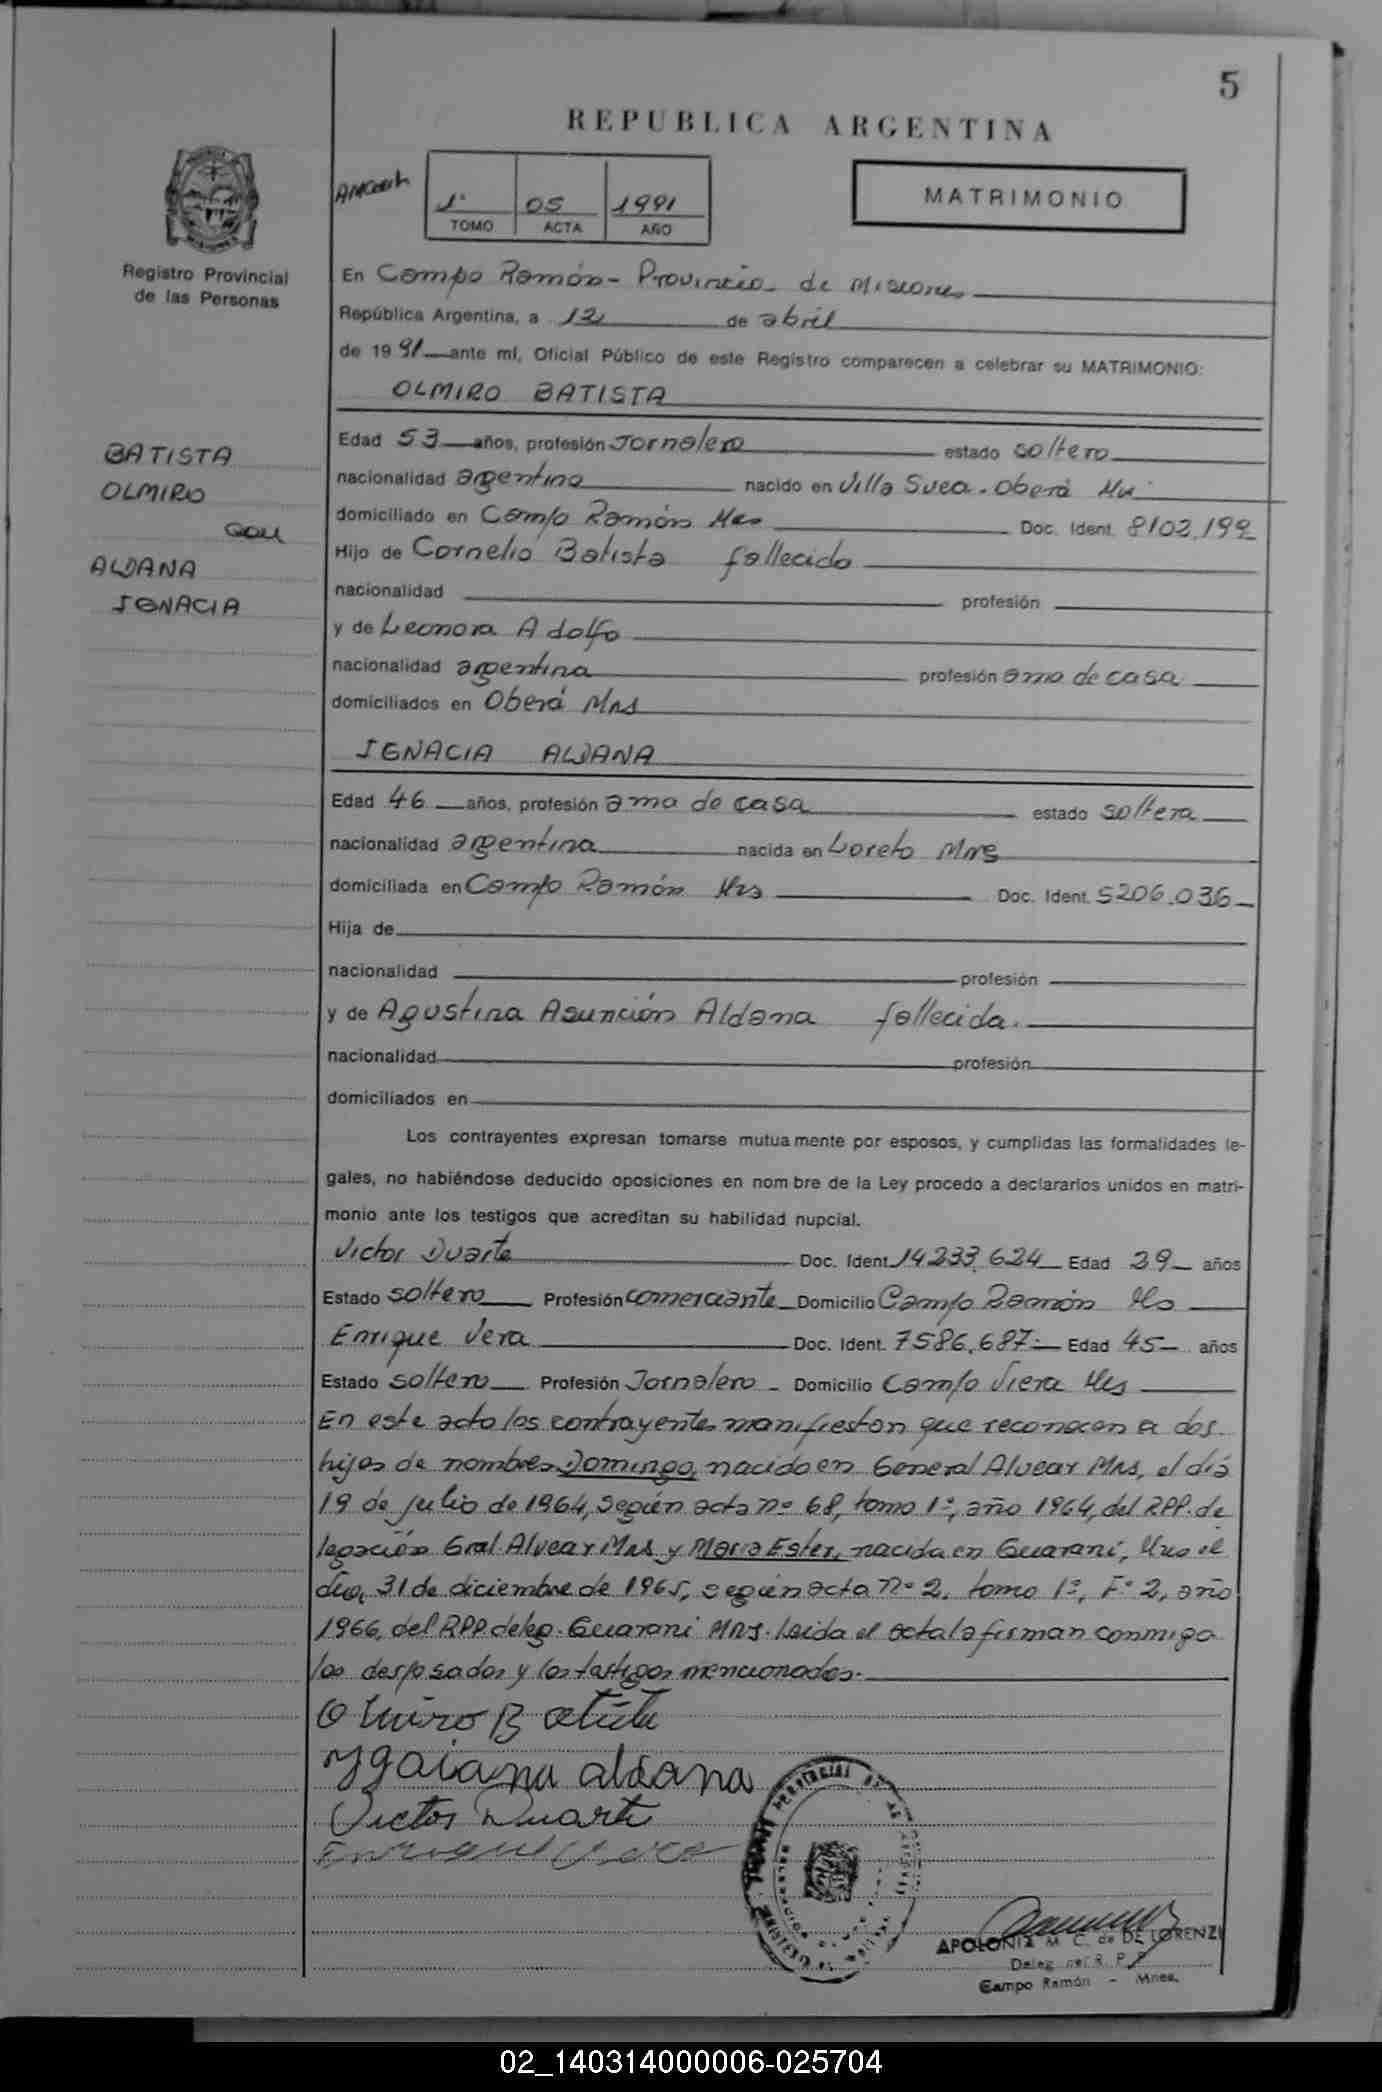 5
REPUBLICA ARGENTINA
1º 05 1991
TOMO ACTA AÑO
MATRIMONIO
Registro Provincial
de las Personas
En Campo Ramón - Provincia de Misiones
República Argentina, a 12 de abril
de 1991 ante mí, Oficial Público de este Registro comparecen a celebrar su MATRIMONIO:
OLMIRO BATISTA
BATISTA
OLMIRO
CON
ALDANA
IGNACIA
Edad 53 años, profesión Jornalero estado soltero
nacionalidad argentina nacido en Villa Svea - Oberá Mns
domiciliado en Campo Ramón Mns Doc. Ident. 8102.199
Hijo de Cornelio Batista fallecido
nacionalidad profesión
y de Leonora Adolfo
nacionalidad argentina profesión ama de casa
domiciliados en Oberá Mns
IGNACIA ALDANA
Edad 46 años, profesión ama de casa estado soltera
nacionalidad argentina nacida en Loreto Mns
domiciliada en Campo Ramón Mns Doc. Ident. 5206.036
Hija de
nacionalidad profesión
y de Agustina Asunción Aldana fallecida.
nacionalidad profesión
domiciliados en
Los contrayentes expresan tomarse mutuamente por esposos, y cumplidas las formalidades le-
gales, no habiéndose deducido oposiciones en nombre de la Ley procedo a declararlos unidos en matri-
monio ante los testigos que acreditan su habilidad nupcial.
Victor Duarte Doc. Ident. 14.233.624 Edad 29 años
Estado soltero Profesión comerciante Domicilio Campo Ramón Mns
Enrique Vera Doc. Ident. 7586.687 Edad 45 años
Estado soltero Profesión Jornalero - Domicilio Campo Viera Mns
En este acto los contrayentes manifiestan que reconocen a dos
hijos de nombres Domingo, nacido en General Alvear Mns, el día
19 de julio de 1964, según acta nº 68, tomo 1º, año 1964, del RPP. de
legación Gral. Alvear Mns y Maria Ester, nacida en Guaraní, Mns el
día, 31 de diciembre de 1965, según acta nº 2, tomo 1º, Fº 2, año
1966, del RPP. deleg. Guaraní Mns. Leida el acta la firman conmigo
los desposados y los testigos mencionados.
Olmiro Batista
Ygaiana aldana
Victor Duarte
Enrique Vera
APOLONIA M. C. de DE LORENZI
Deleg. del R. P. P.
Campo Ramón - Mnes.
02_140314000006-025704